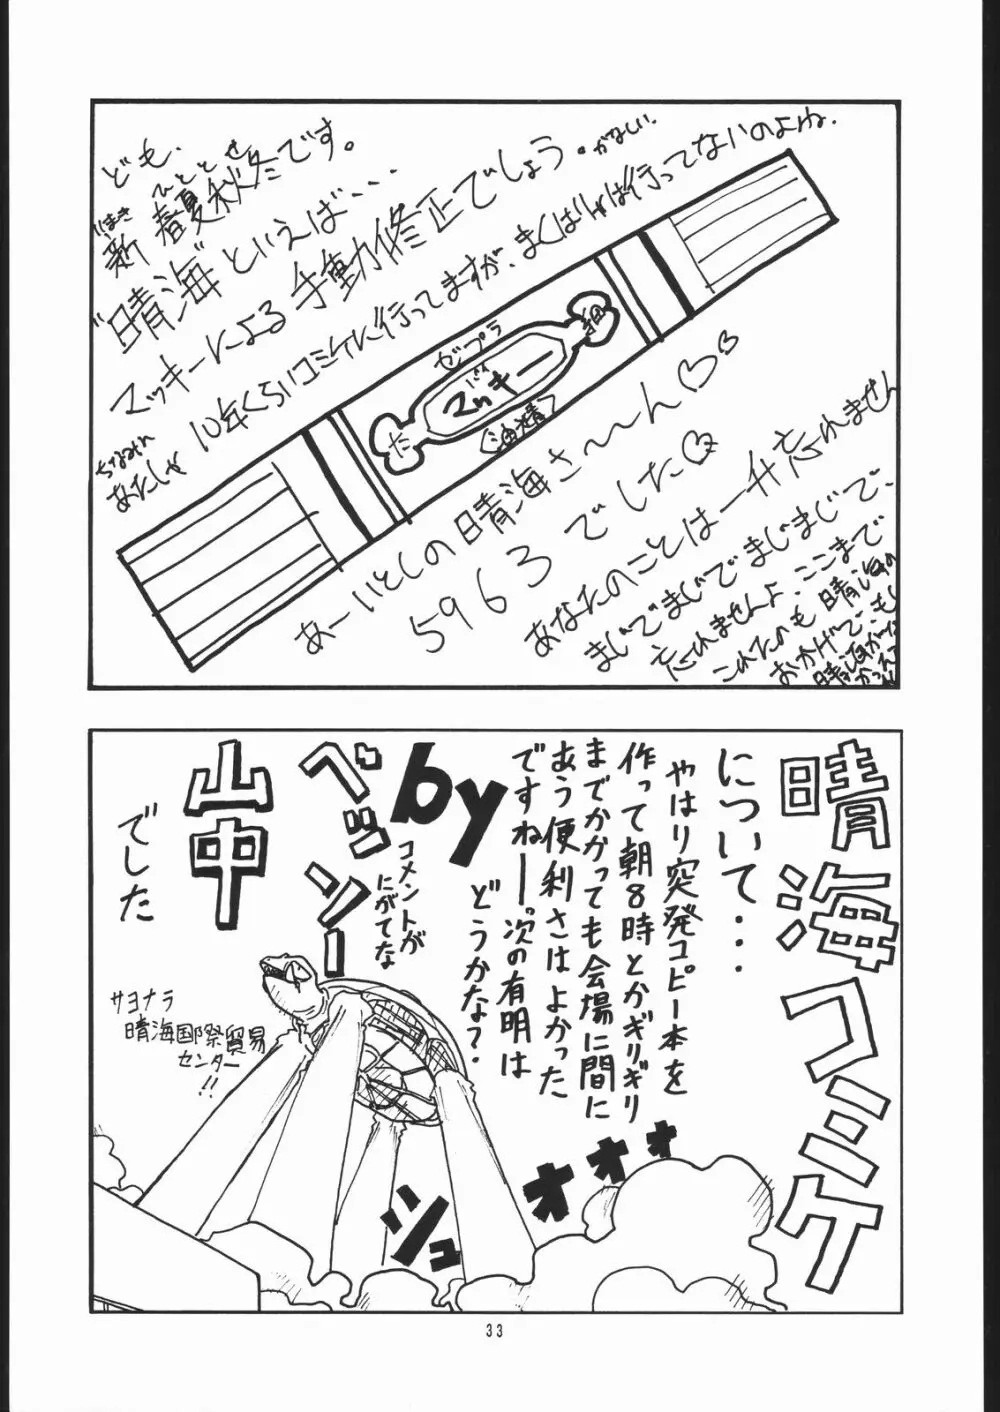 ども、
新 春夏秋冬です。
にまき ひととせ
"晴海"といえば・・・
マッキーによる手動修正でしょう。
ちなみに
あたしゃ 10年くらいコミケに行ってますが、まくはりは行ってないのよね.
ゼブラ
マッキー
バイ
〈油精〉
太
細
あーいとしの晴海さ〜〜ん♡♡
5963でした♡
あなたのことは一升忘れません
まじでまじでまじまじで、
忘れませんよ。ここまで
これたのも 晴海の
おかげで、もし
晴海がな
かっ
晴海コミケ
について・・・
やはり突発コピー本を
作って朝8時とかギリギリ
までかかっても会場に間に
あう便利さはよかった
ですねー。次の有明は
どうかな?
by
コメントが
にがてな
ベッソー
山中
でした
サヨナラ
晴海国際貿易
センター
!!
オオォォ
シュ
33